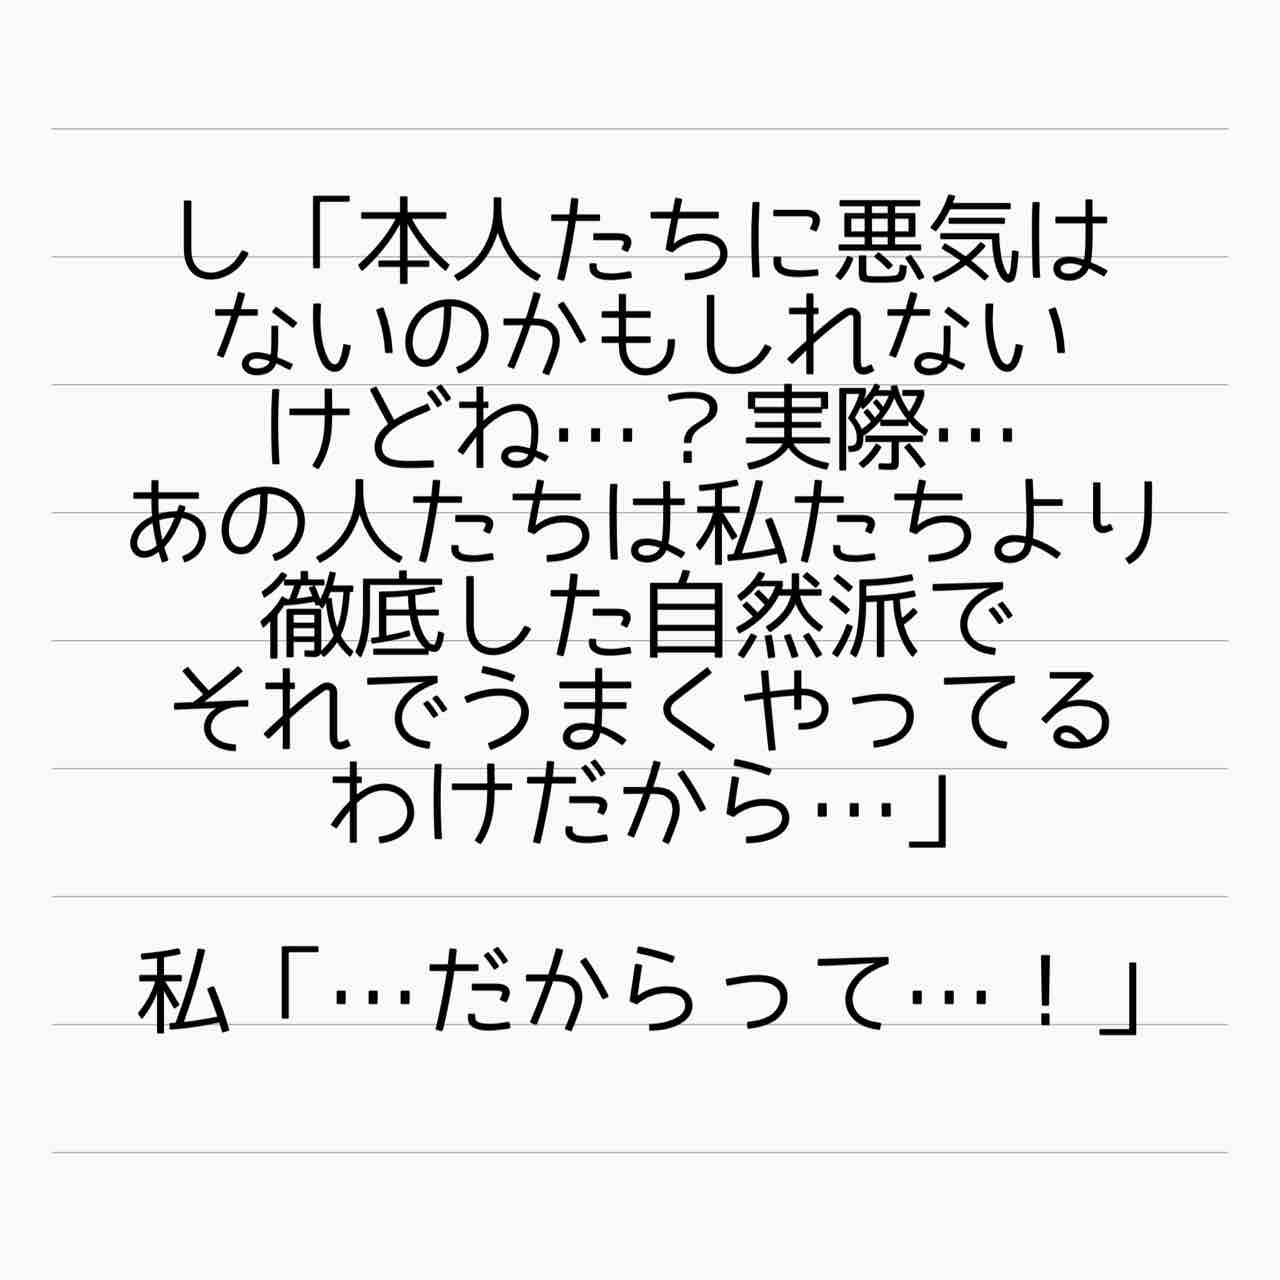 し「本人たちに悪気は
ないのかもしれない
けどね…？実際…
あの人たちは私たちより
徹底した自然派で
それでうまくやってる
わけだから…」
私「…だからって…！」